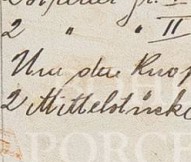 2 " " II
Um den Knop
2 Mittelstücke
PORCE